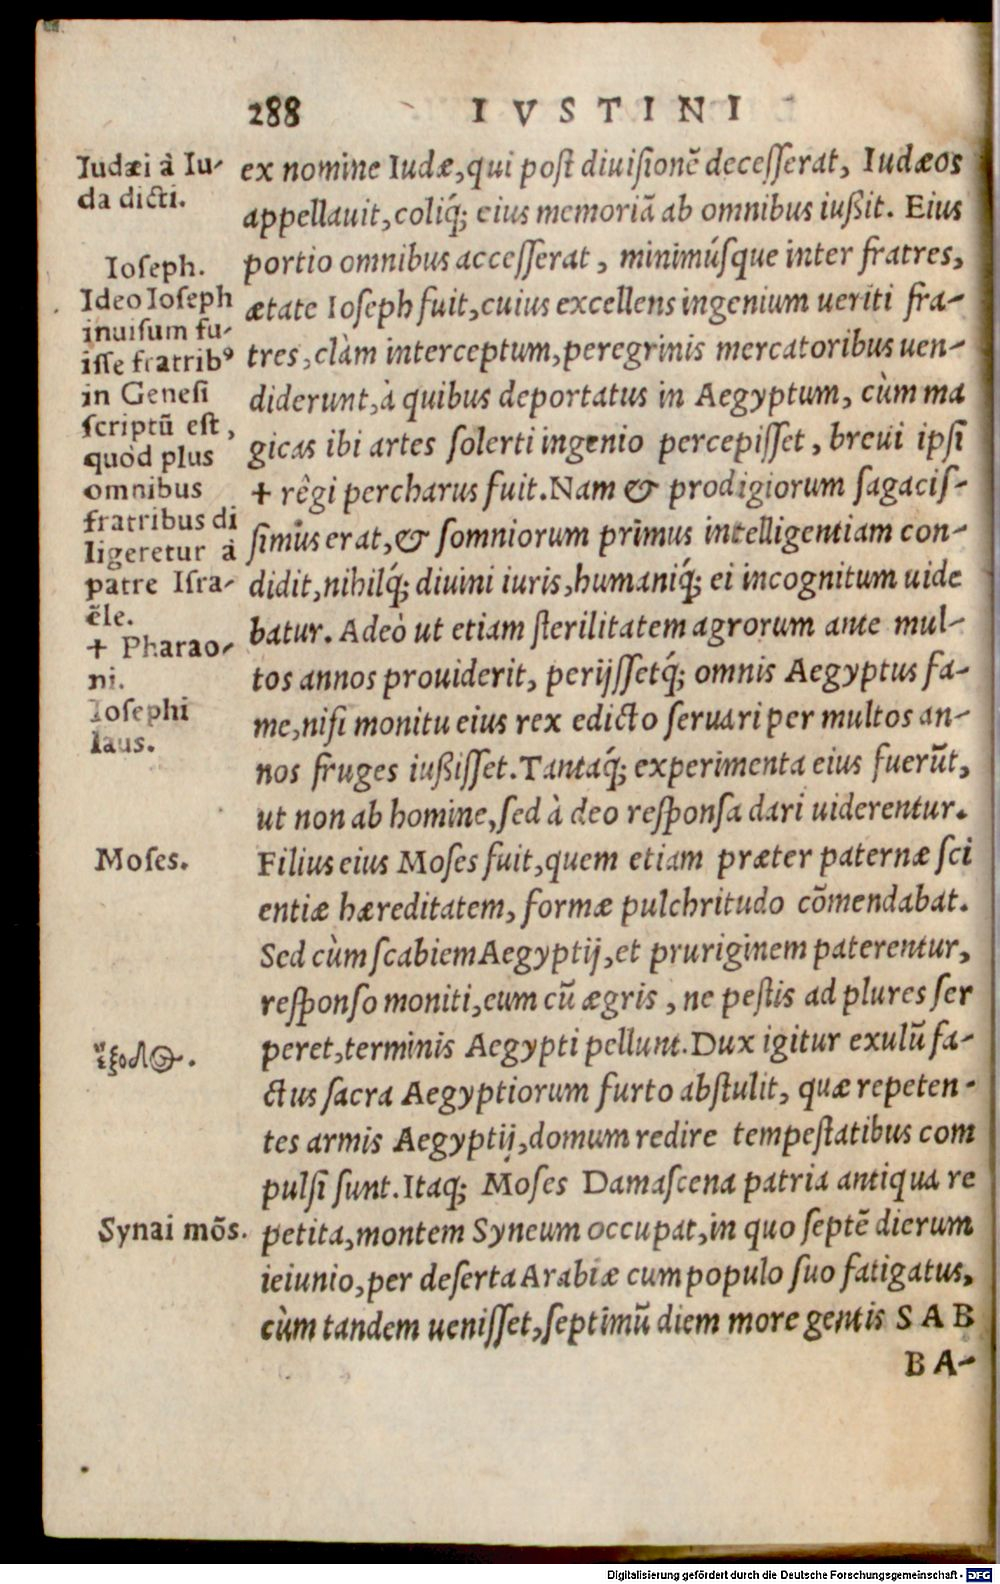 288 IVSTINI
Iudæi à Iu-
da dicti.
Ioseph.
Ideo Ioseph
inuisum fu-
isse fratribꝰ
in Genesi
scriptū est,
quòd plus
omnibus
fratribus di
ligeretur à
patre Isra-
ēle.
+ Pharao-
ni.
Iosephi
laus.
Moses.
ἔξοδος.
Synai mōs.
ex nomine Iudæ, qui post diuisionē decesserat, Iudæos
appellauit, coliq́; eius memoriā ab omnibus iußit. Eius
portio omnibus accesserat, minimúsque inter fratres,
ætate Ioseph fuit, cuius excellens ingenium ueriti fra-
tres, clàm interceptum, peregrinis mercatoribus uen-
diderunt, à quibus deportatus in Aegyptum, cùm ma
gicas ibi artes solerti ingenio percepisset, breui ipsi
+ rêgi percharus fuit. Nam & prodigiorum sagacis-
simus erat, & somniorum primus intelligentiam con-
didit, nihilq́; diuini iuris, humaniq́; ei incognitum uide
batur. Adeò ut etiam sterilitatem agrorum ante mul-
tos annos prouiderit, perijssetq́; omnis Aegyptus fa-
me, nisi monitu eius rex edicto seruari per multos an-
nos fruges iußisset. Tantaq́; experimenta eius fuerūt,
ut non ab homine, sed à deo responsa dari uiderentur.
Filius eius Moses fuit, quem etiam præter paternæ sci
entiæ hæreditatem, formæ pulchritudo cōmendabat.
Sed cùm scabiem Aegyptij, et pruriginem paterentur,
responso moniti, eum cū ægris, ne pestis ad plures ser
peret, terminis Aegypti pellunt. Dux igitur exulū fa-
ctus sacra Aegyptiorum furto abstulit, quæ repeten-
tes armis Aegyptij, domum redire tempestatibus com
pulsi sunt. Itaq; Moses Damascena patria antiqua re
petita, montem Syneum occupat, in quo septē dierum
ieiunio, per deserta Arabiæ cum populo suo fatigatus,
cùm tandem uenisset, septimū diem more gentis SAB
BA-
Digitalisierung gefördert durch die Deutsche Forschungsgemeinschaft - DFG